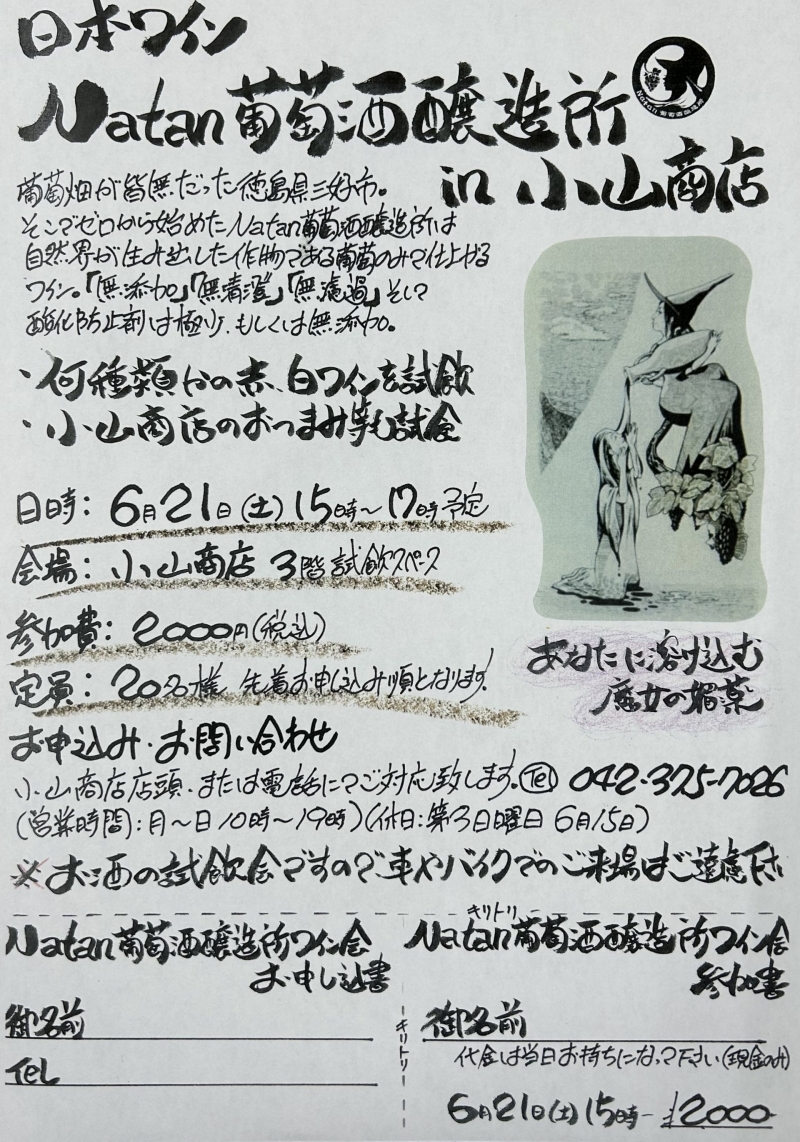 日本ワイン
Natan葡萄酒醸造所
Natan葡萄酒醸造所
in 小山商店
葡萄畑が皆無だった徳島県三好市。
そこでゼロから始めたNatan葡萄酒醸造所は
自然界が生み出した作物である葡萄のみで仕上げる
ワイン。「無添加」「無清澄」「無濾過」そして
酸化防止剤は極少、もしくは無添加。
・何種類かの赤、白ワインを試飲
・小山商店のおつまみ等も試食
日時：6月21日(土)15時～17時予定
会場：小山商店 3階試飲スペース
参加費：2000円(税込)
定員：20名様 先着お申し込み順となります。
あなたに溶け込む
魔女の媚薬
お申込み・お問い合わせ
小山商店店頭、または電話にてご対応致します。Tel 042-375-7026
(営業時間：月～日10時～19時)(休日：第3日曜日 6月15日)
※お酒の試飲会ですので、車やバイクでのご来場はご遠慮下さい
キリトリ
Natan葡萄酒醸造所ワイン会
お申し込書
御名前
TEL
キリトリ
Natan葡萄酒醸造所ワイン会
参加書
御名前
代金は当日お持ちになって下さい(現金のみ)
6月21日(土)15時- ¥2000-